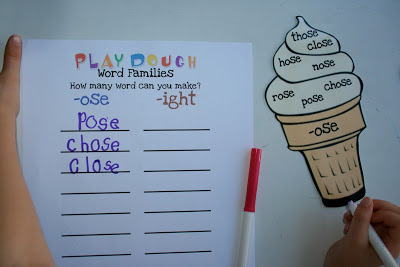 PLAY DOUGH
Word Families
How many word can you make?
-ose -ight
pose
chose
close
those
close
hose nose
rose pose chose
-ose